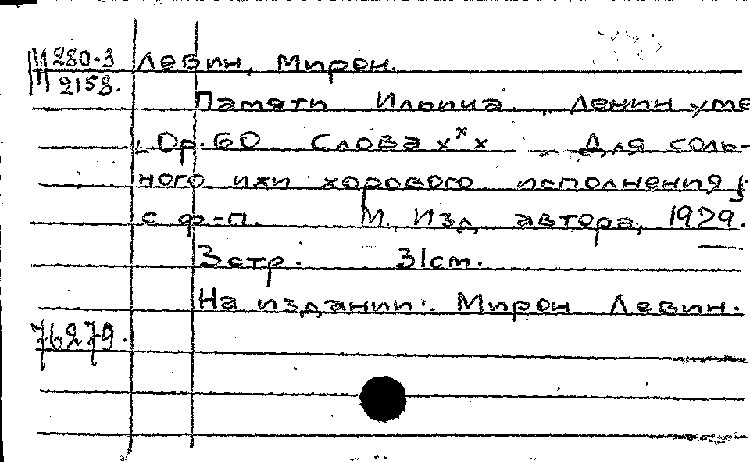 Ш 280-3 Левин, Мирон.
2158.
Памяти Ильича. „Ленин уме
". Ор. 60 Слова х х х Для соль-
ного или хорового исполнения
с ф-п. М., Изд. автора, 1929.
3 стр. 31 см.
На издании: Мирон Левин.
76279.